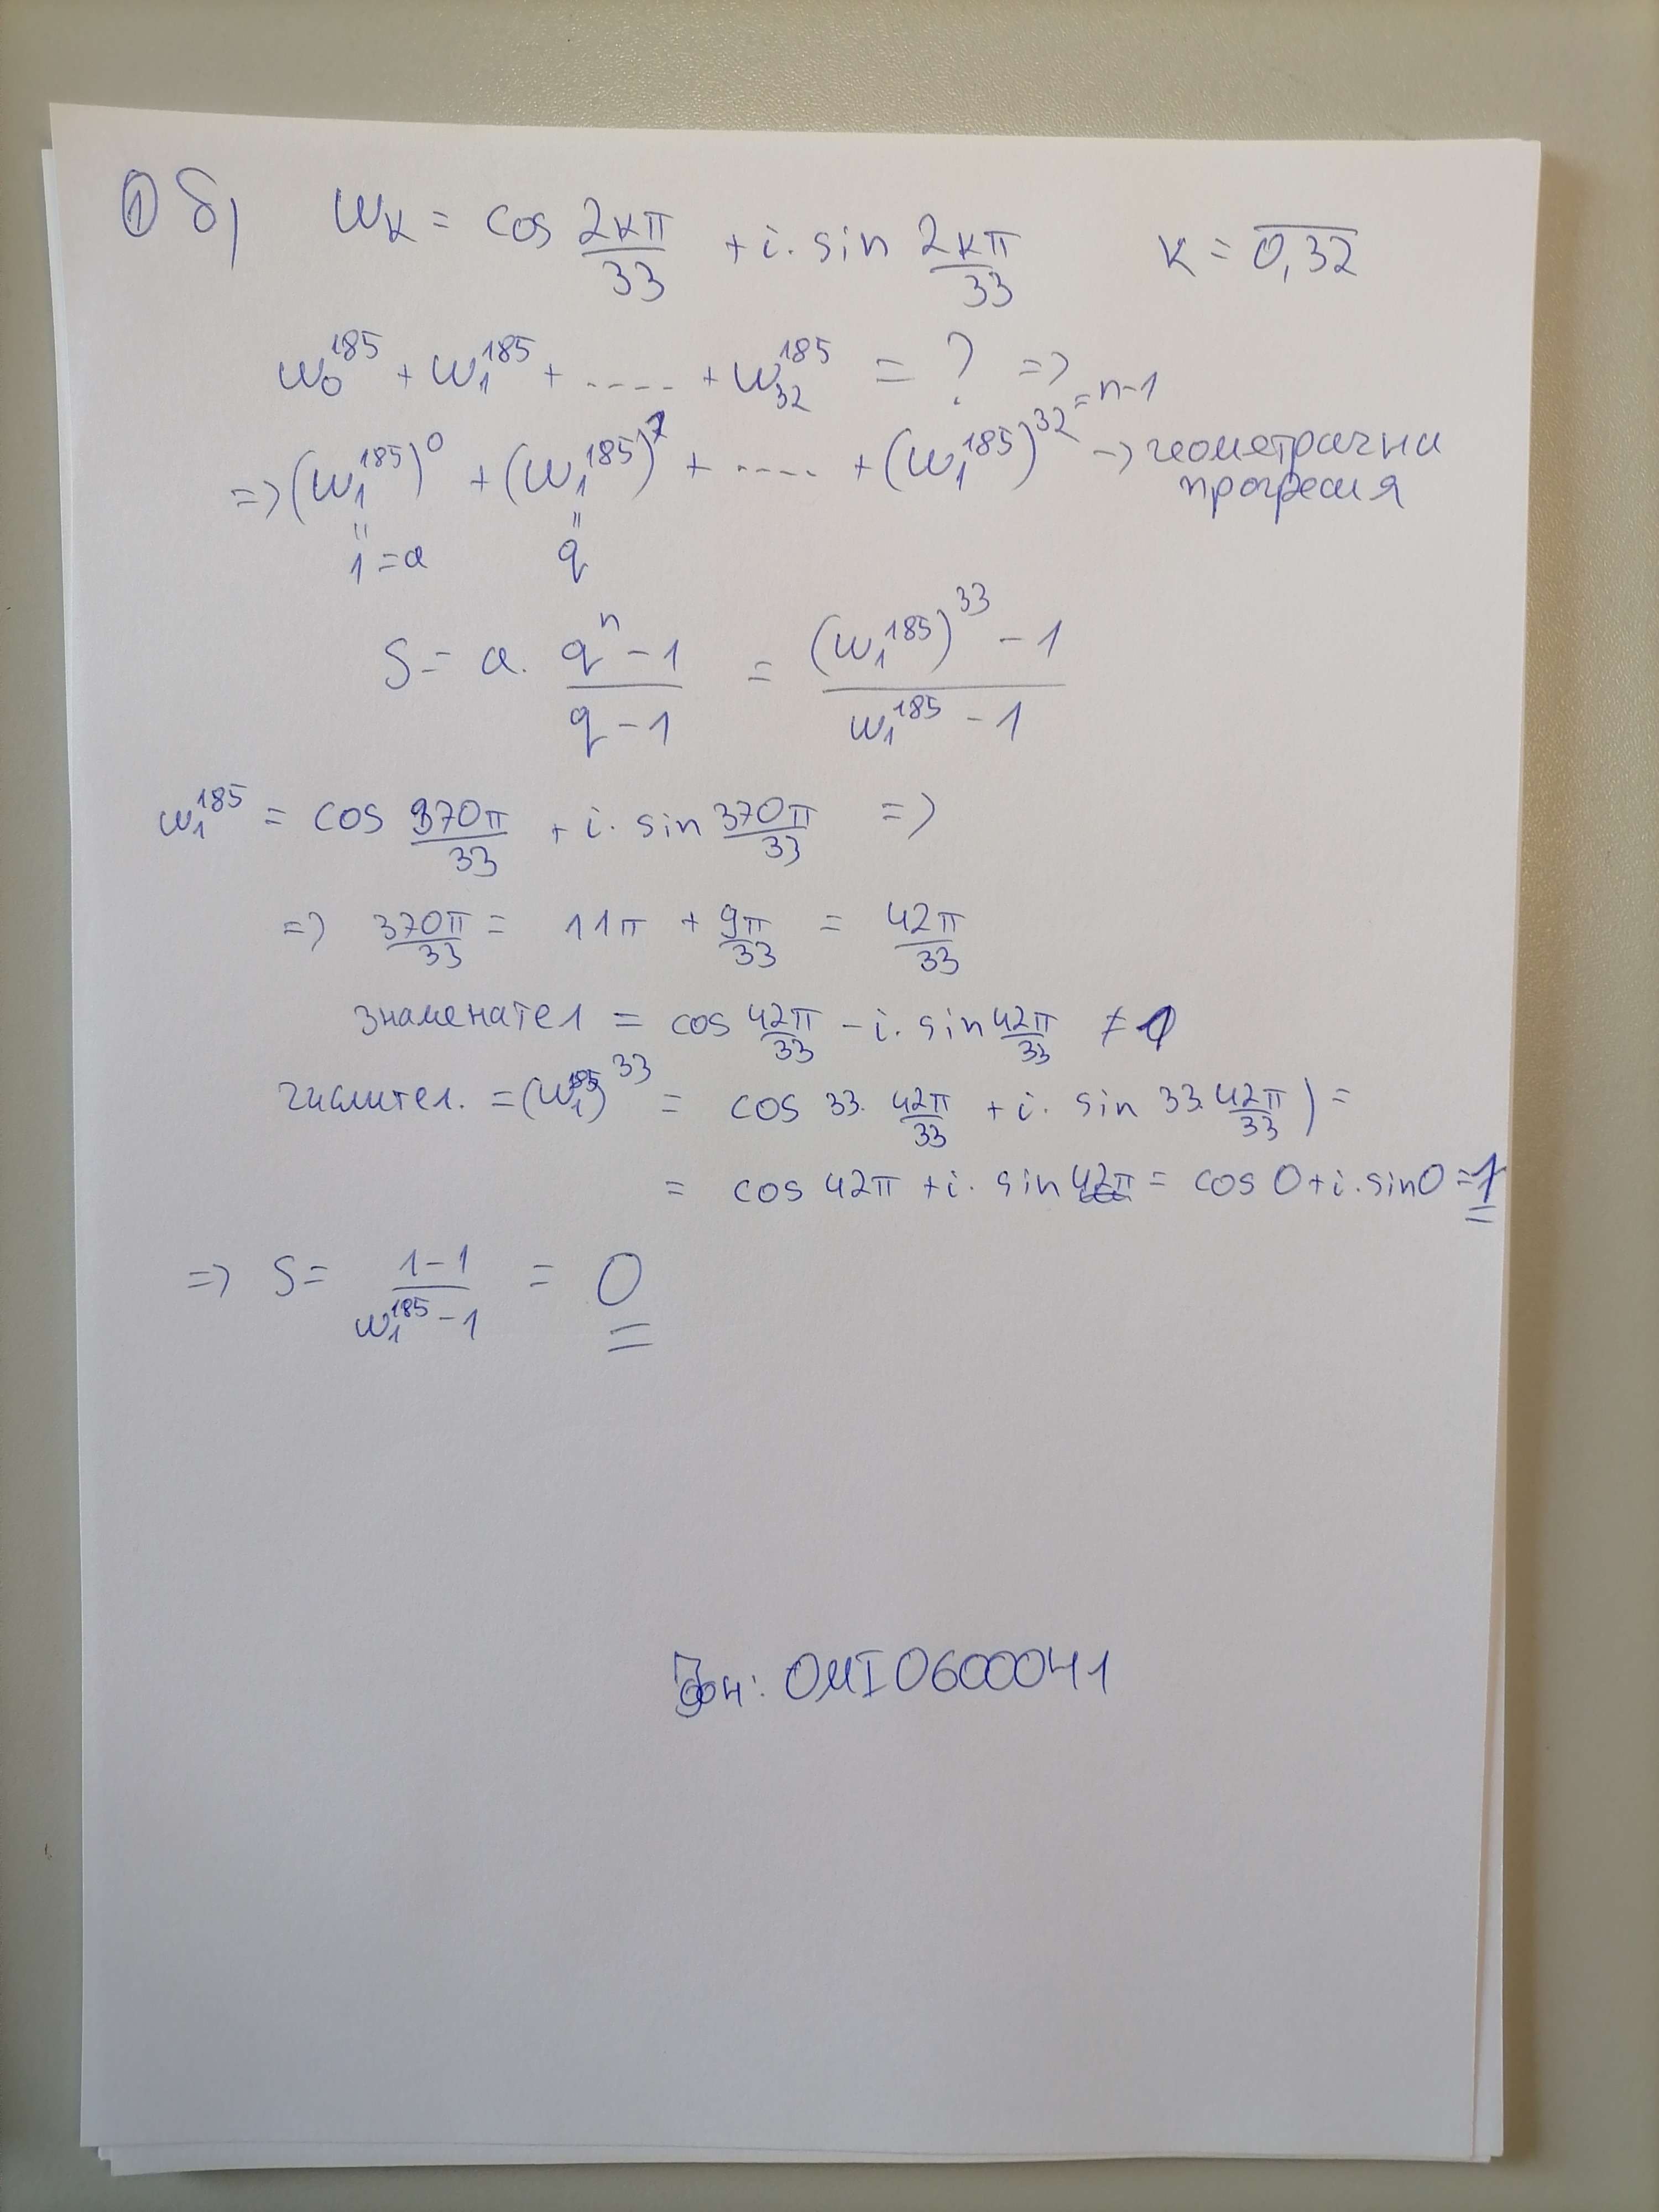 ① б) ωₖ = cos 2kπ/33 + i. sin 2kπ/33 k = 0,32
ω₀¹⁸⁵ + ω₁¹⁸⁵ + ..... + ω₃₂¹⁸⁵ = ? =>
=> (ω₁¹⁸⁵)⁰ + (ω₁¹⁸⁵)¹ + ..... + (ω₁¹⁸⁵)³² = n-1 -> геометрична
прогресия
1 = a q
S = a. (qⁿ - 1)/(q - 1) = ((ω₁¹⁸⁵)³³ - 1)/(ω₁¹⁸⁵ - 1)
ω₁¹⁸⁵ = cos 370π/33 + i. sin 370π/33 =>
=> 370π/33 = 11π + 9π/33 = 42π/33
знаменател = cos 42π/33 - i. sin 42π/33 ≠
числител. = (ω₁¹⁸⁵)³³ = cos 33. 42π/33 + i. sin 33. 42π/33) =
= cos 42π + i. sin 42π = cos 0 + i. sin 0 = 1
=> S = (1-1)/(ω₁¹⁸⁵ - 1) = 0
0MI0600041